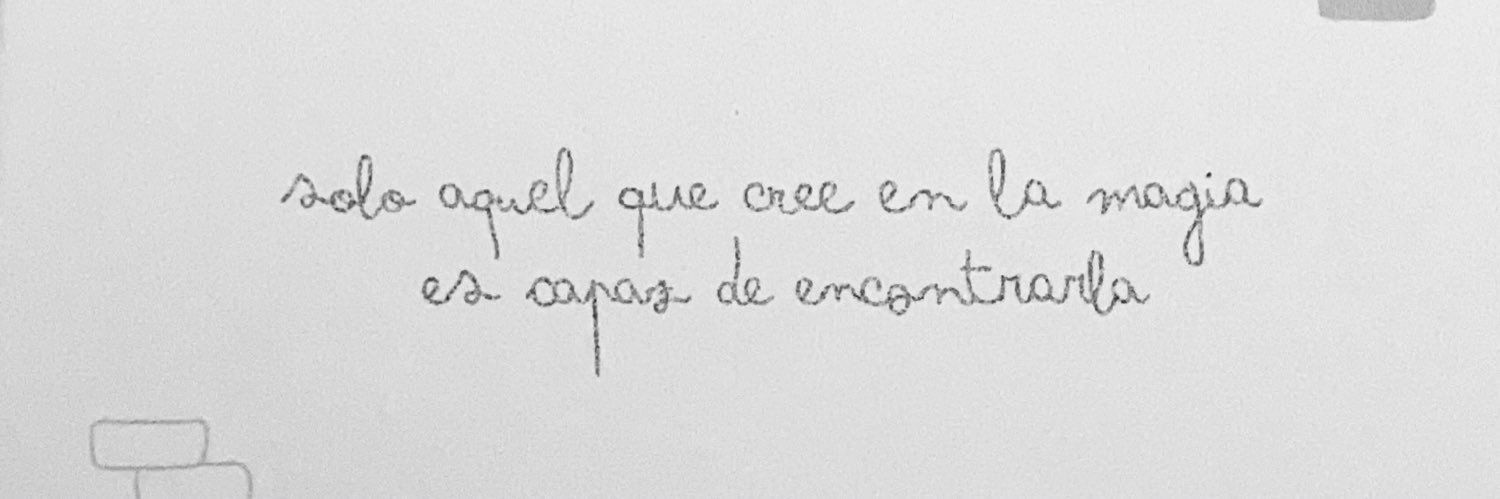 solo aquel que cree en la magia
es capaz de encontrarla